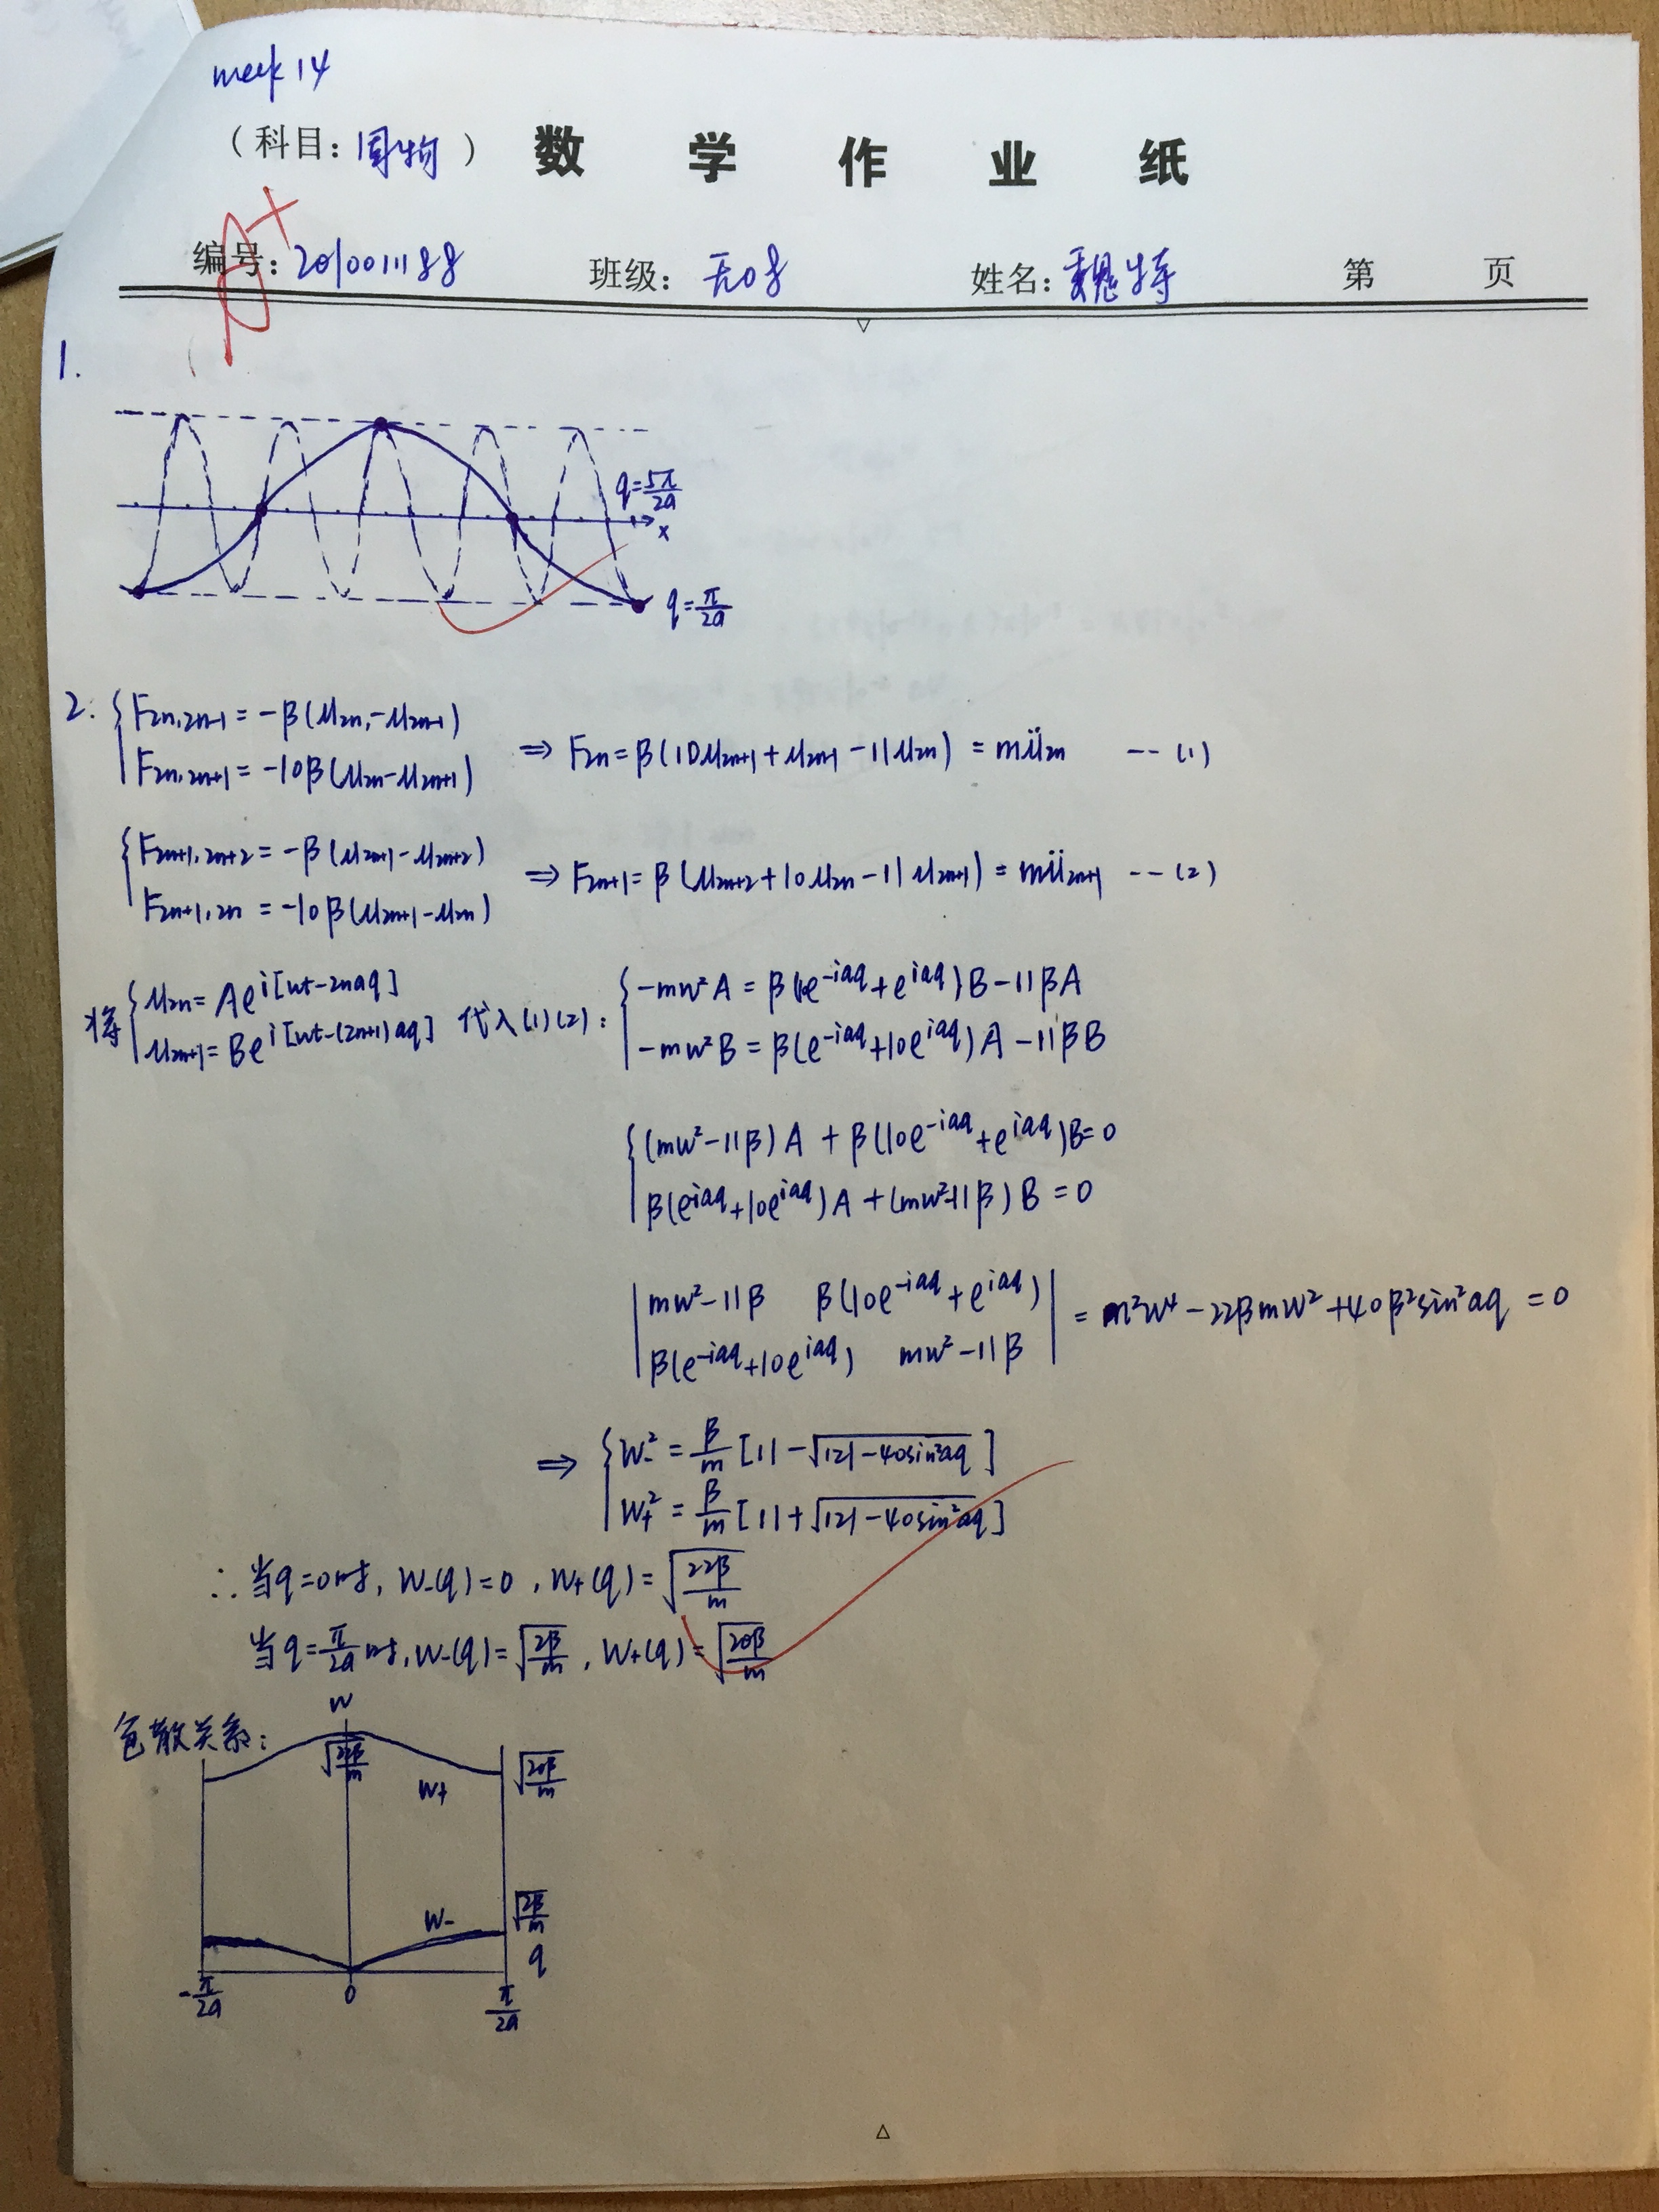 week 14
(科目: 固物) 数学作业纸
A+
编号: 2010011188 班级: 无08 姓名: 魏特 第 页
1.
q=5π/2a
x
q=π/2a
2. { F2n,2n-1 = -β(μ2n-μ2n-1)
F2n,2n+1 = -10β(μ2n-μ2n+1) ⇒ F2n = β(10μ2n+1+μ2n-1-11μ2n) = mμ̈2n --- (1)
{ F2n+1,2n+2 = -β(μ2n+1-μ2n+2)
F2n+1,2n = -10β(μ2n+1-μ2n) ⇒ F2n+1 = β(μ2n+2+10μ2n-11μ2n+1) = mμ̈2n+1 --- (2)
将 { μ2n = Ae^i[wt-2naq]
μ2n+1 = Be^i[wt-(2n+1)aq] 代入(1)(2):
{ -mw²A = β(10e^-iaq+e^iaq)B-11βA
-mw²B = β(e^-iaq+10e^iaq)A-11βB
{ (mw²-11β)A + β(10e^-iaq+e^iaq)B=0
β(e^iaq+10e^iaq)A + (mw²-11β)B = 0
| mw²-11β β(10e^-iaq+e^iaq) |
| β(e^-iaq+10e^iaq) mw²-11β | = m²w⁴-22βmw²+40β²sin²aq = 0
⇒ { w-² = β/m [11-√(121-40sin²aq)]
w+² = β/m [11+√(121-40sin²aq)]
∴ 当q=0时, w-(q)=0, w+(q)=√(22β/m)
当q=π/2a时, w-(q)=√(2β/m), w+(q)=√(20β/m)
色散关系:
w
√(22β/m)
√(20β/m)
w+
√(2β/m)
w-
q
-π/2a 0 π/2a